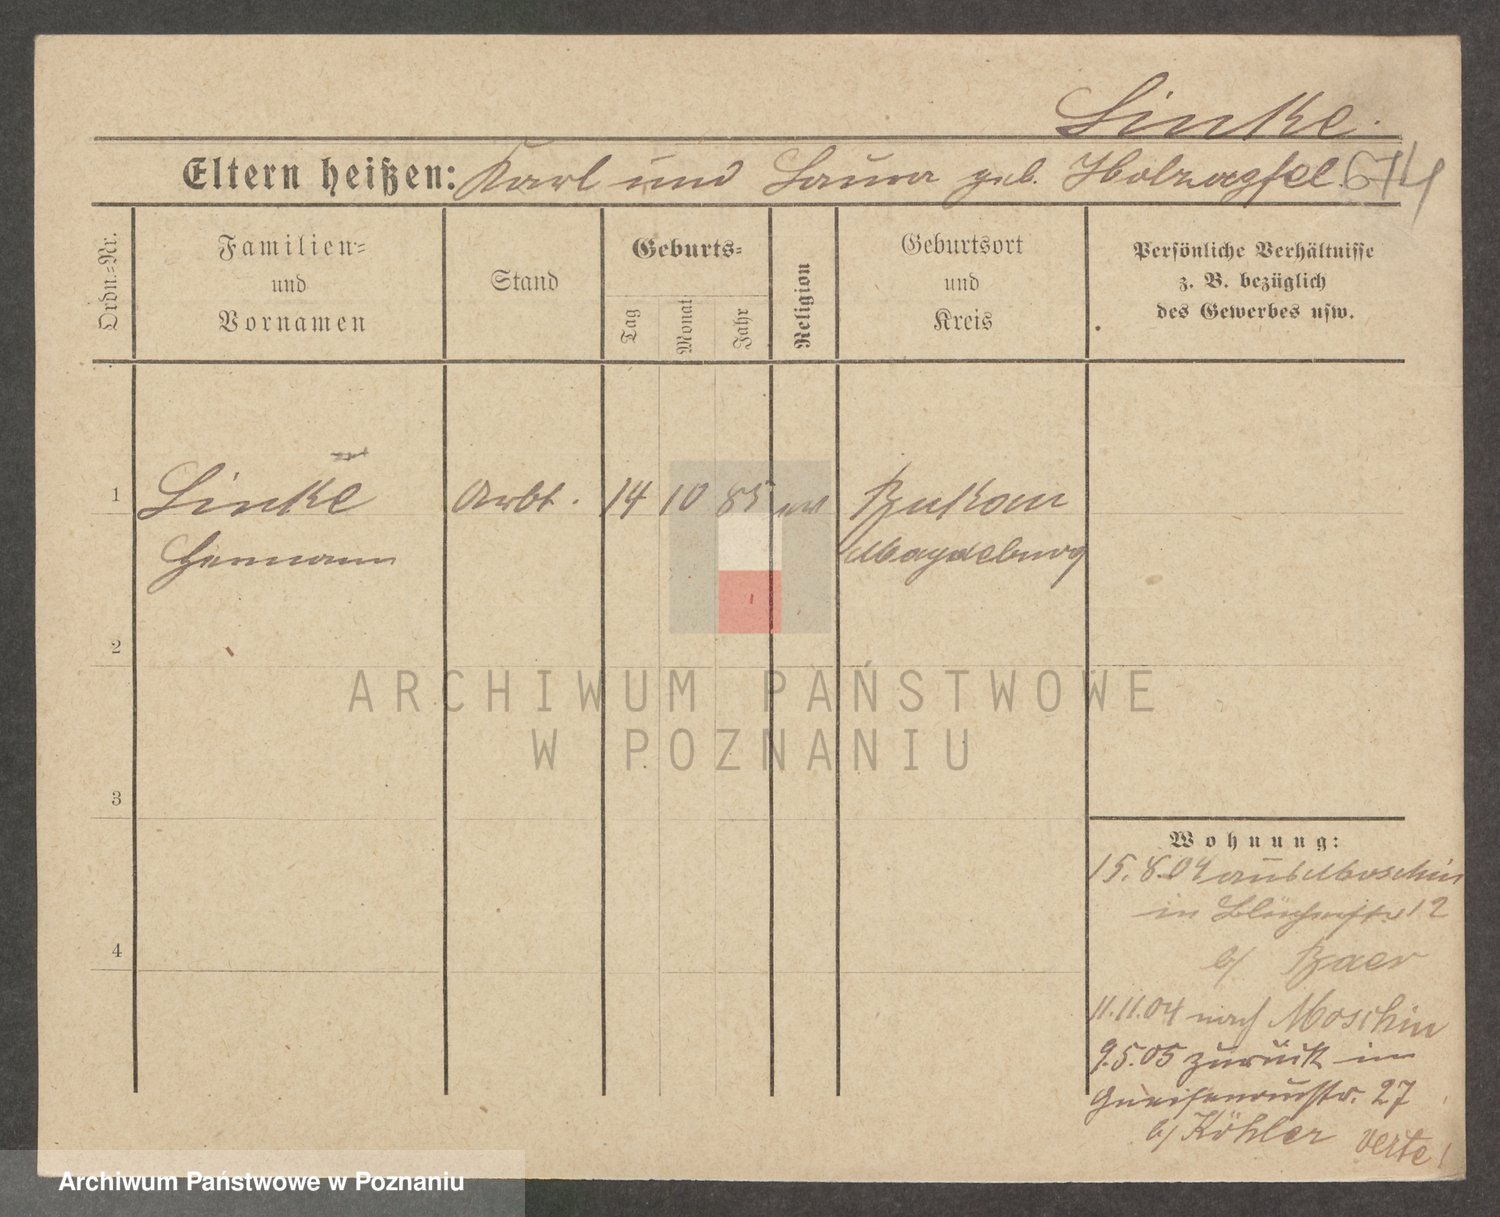 Linke.
Eltern heißen: Karl und Laura geb. Holzapfel 614
Ordn.-Nr.
Familien-
und
Vornamen
Stand
Geburts-
Tag
Monat
Jahr
Religion
Geburtsort
und
Kreis
Persönliche Verhältnisse
z. B. bezüglich
des Gewerbes usw.
1 Linke Arbt. 14 10 85 ev Bukau
Hermann Magdeburg
2
ARCHIWUM PAŃSTWOWE
W POZNANIU
3
Wohnung:
15.8.04 aus Moschin
in Blücherstr 12
b/ Baer
4
11.11.04 nach Moschin
9.5.05 zurück in
Gneisenaustr. 27
b/ Köhler verte!
Archiwum Państwowe w Poznaniu